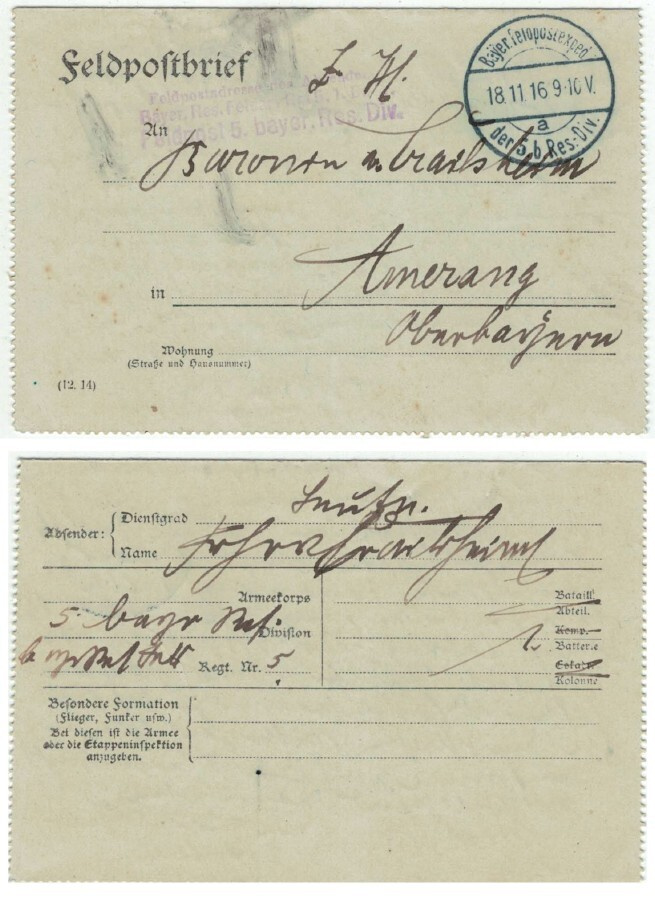 Feldpostbrief
Bayer. Feldpostexped.
18.11.16 9-10 V.
a
der 5. b. Res.-Div.
Feldpost 5. bayer. Res. Div.
An
Baronin v. Crailsheim
in
Amerang
Oberbayern
Wohnung
(Straße und Hausnummer)
(12. 14)
Absender:
Dienstgrad
Name Frhr v Crailsheim
Armeekorps
5. bayr Res. Division
Regt. Nr. 5
Bataill.
Abteil.
Komp.
Batterie
1.
Eskadr.
Kolonne
Besondere Formation
(Flieger, Funker usw.)
Bei diesen ist die Armee
oder die Etappeninspektion
anzugeben.